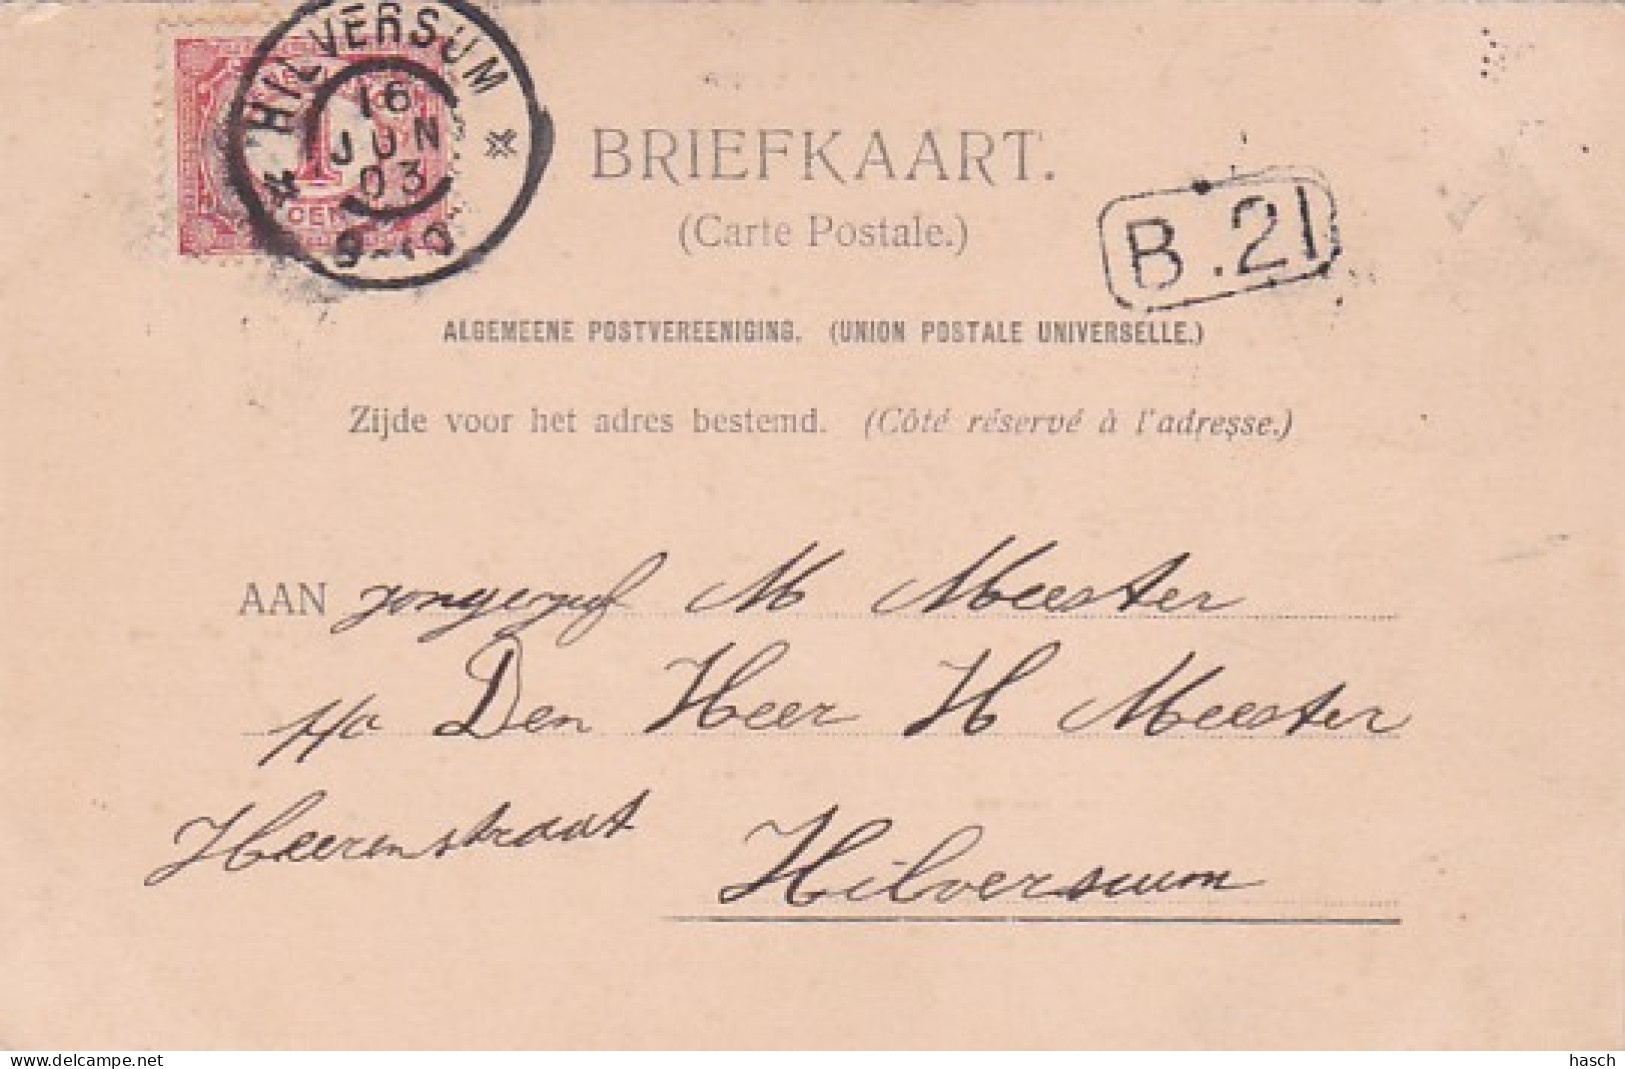 HILVERSUM
16
JUN
03
9-10
1
CENT
BRIEFKAART.
(Carte Postale.)
B.21
ALGEMEENE POSTVEREENIGING. (UNION POSTALE UNIVERSELLE.)
Zijde voor het adres bestemd. (Côté réservé à l'adresse.)
AAN M Meester
p/a Den Heer H Meester
Heerenstraat
Hilversum
www.delcampe.net
hasch